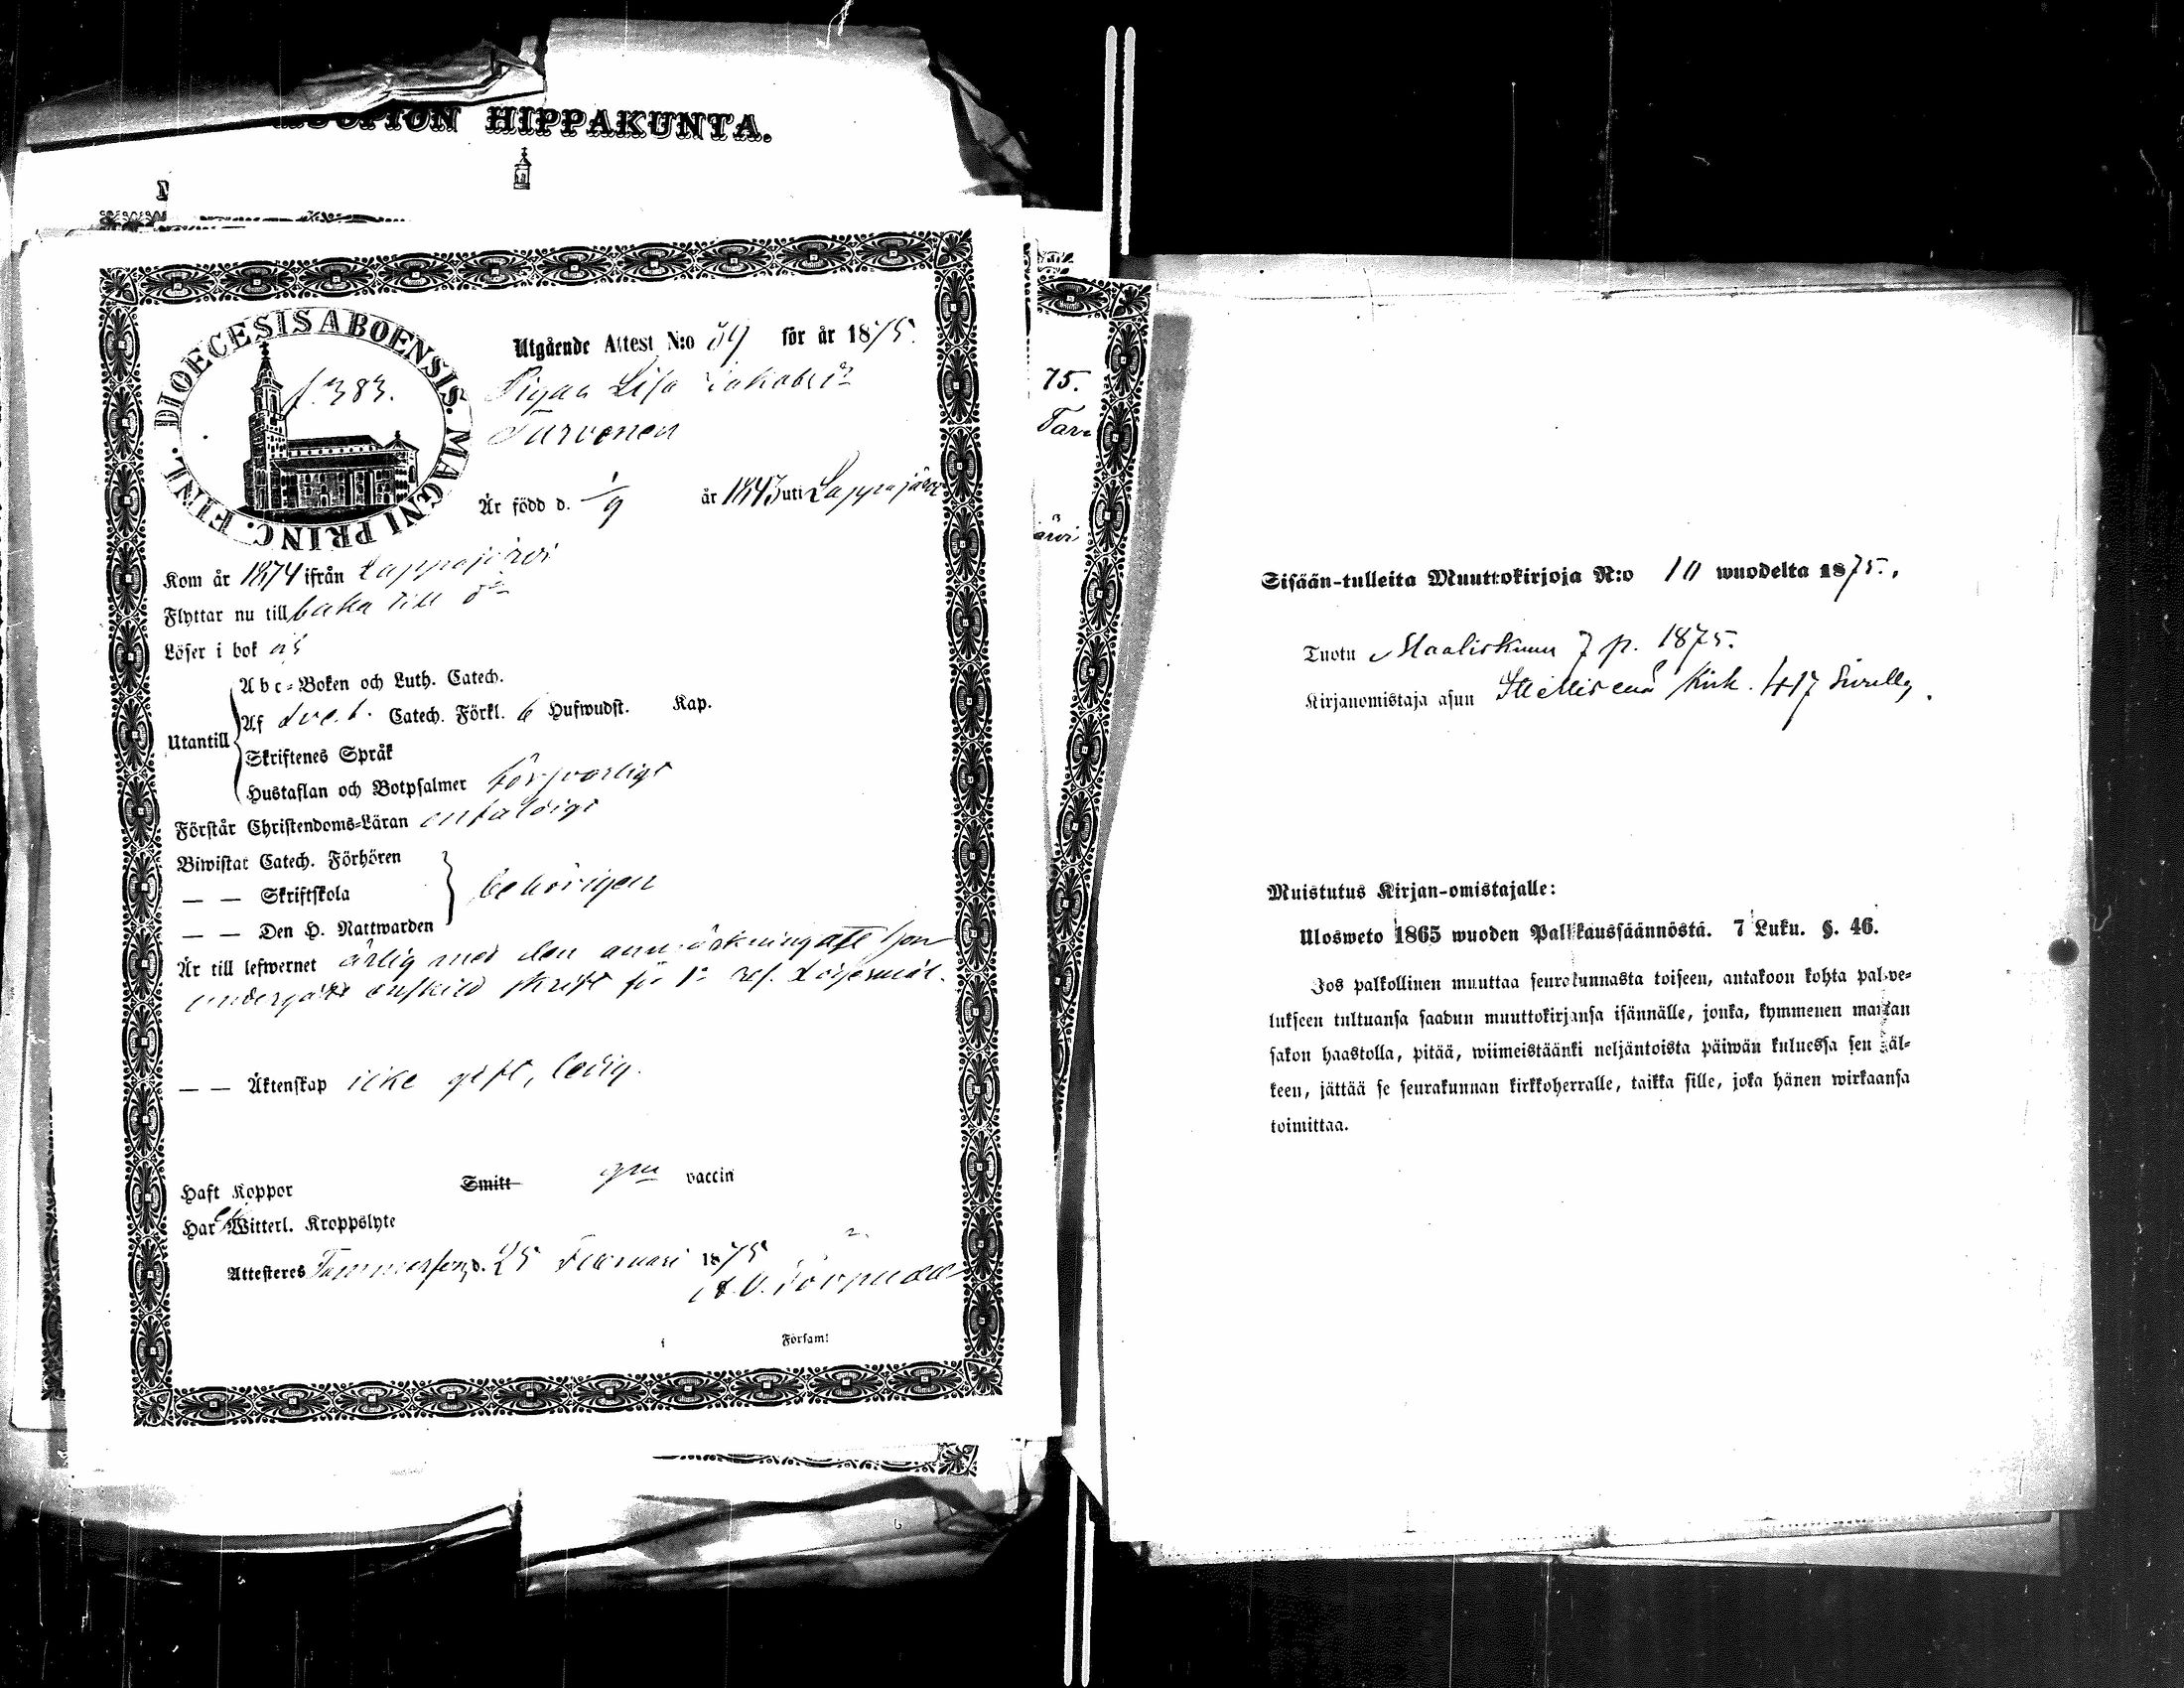 HIPPAKUNTA.
DIOECESIS ABOENSIS. MAGNI PRINC. FINL.
f. 383.
Utgående Attest N:o 59 för år 1875.
Pigan Lisa
Turvonen
Är född d. 1/9 år 1843 uti Lappajärvi
Kom år 1874 ifrån Lappajärvi
Flyttar nu till baka till do
Löser i bok
Abc-Boken och Luth. Catech.
Af Sveb. Catech. Förkl. 6 Hufwudst. Kap.
Utantill
Skriftenes Språk
Hustaflan och Botpsalmer försvarligt
Förstår Christendoms-Läran enfaldigt
Biwistat Catech. Förhören
— — Skriftskola
behörigen
— — Den H. Nattwarden
Är till lefwernet ärlig med den anmärkning att hon
undergått enskild skrift för 1:a resan lönskaläge.
— — Äktenskap icke gift, ledig.
Haft Koppor Smitt gm vaccin
Har ej Witterl. Kroppslyte
Attesteres Tammerfors d. 25 Februari 1875
Församl
75.
Tar
ärvi
Sisään-tulleita Muuttokirjoja N:o 10 wuodelta 1875.
Tuotu Maaliskuun 7 p. 1875.
Kirjanomistaja asuu Kirk. 417 Sivulla.
Muistutus Kirjan-omistajalle:
Ulosweto 1865 wuoden Palkkaussäännöstä. 7 Luku. §. 46.
Jos palkollinen muuttaa seurakunnasta toiseen, antakoon kohta palwe-
lukseen tultuansa saadun muuttokirjansa isännälle, jonka, kymmenen markan
sakon haastolla, pitää, wiimeistäänki neljäntoista päiwän kuluessa sen jäl-
keen, jättää se seurakunnan kirkkoherralle, taikka sille, joka hänen wirkaansa
toimittaa.